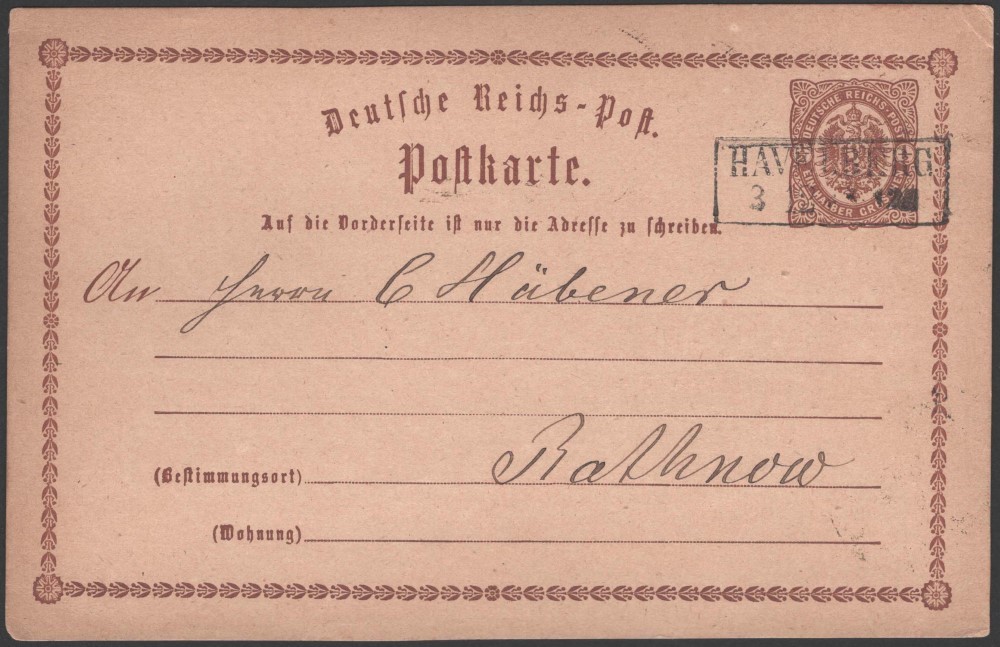 Deutsche Reichs-Post.
Postkarte.
DEUTSCHE REICHS-POST
EIN HALBER GR
HAVELBERG
3
Auf die Vorderseite ist nur die Adresse zu schreiben.
An Herrn C Hübener
(Bestimmungsort) Rathnow
(Wohnung)